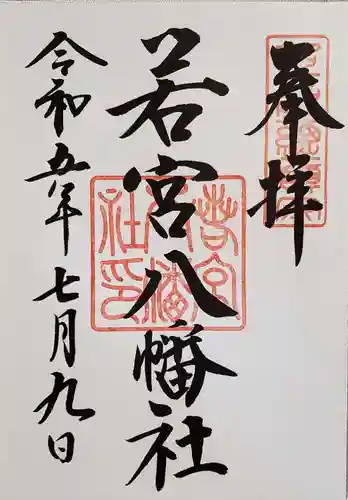 奉拝
若宮八幡社
令和五年七月九日
若宮八幡社印